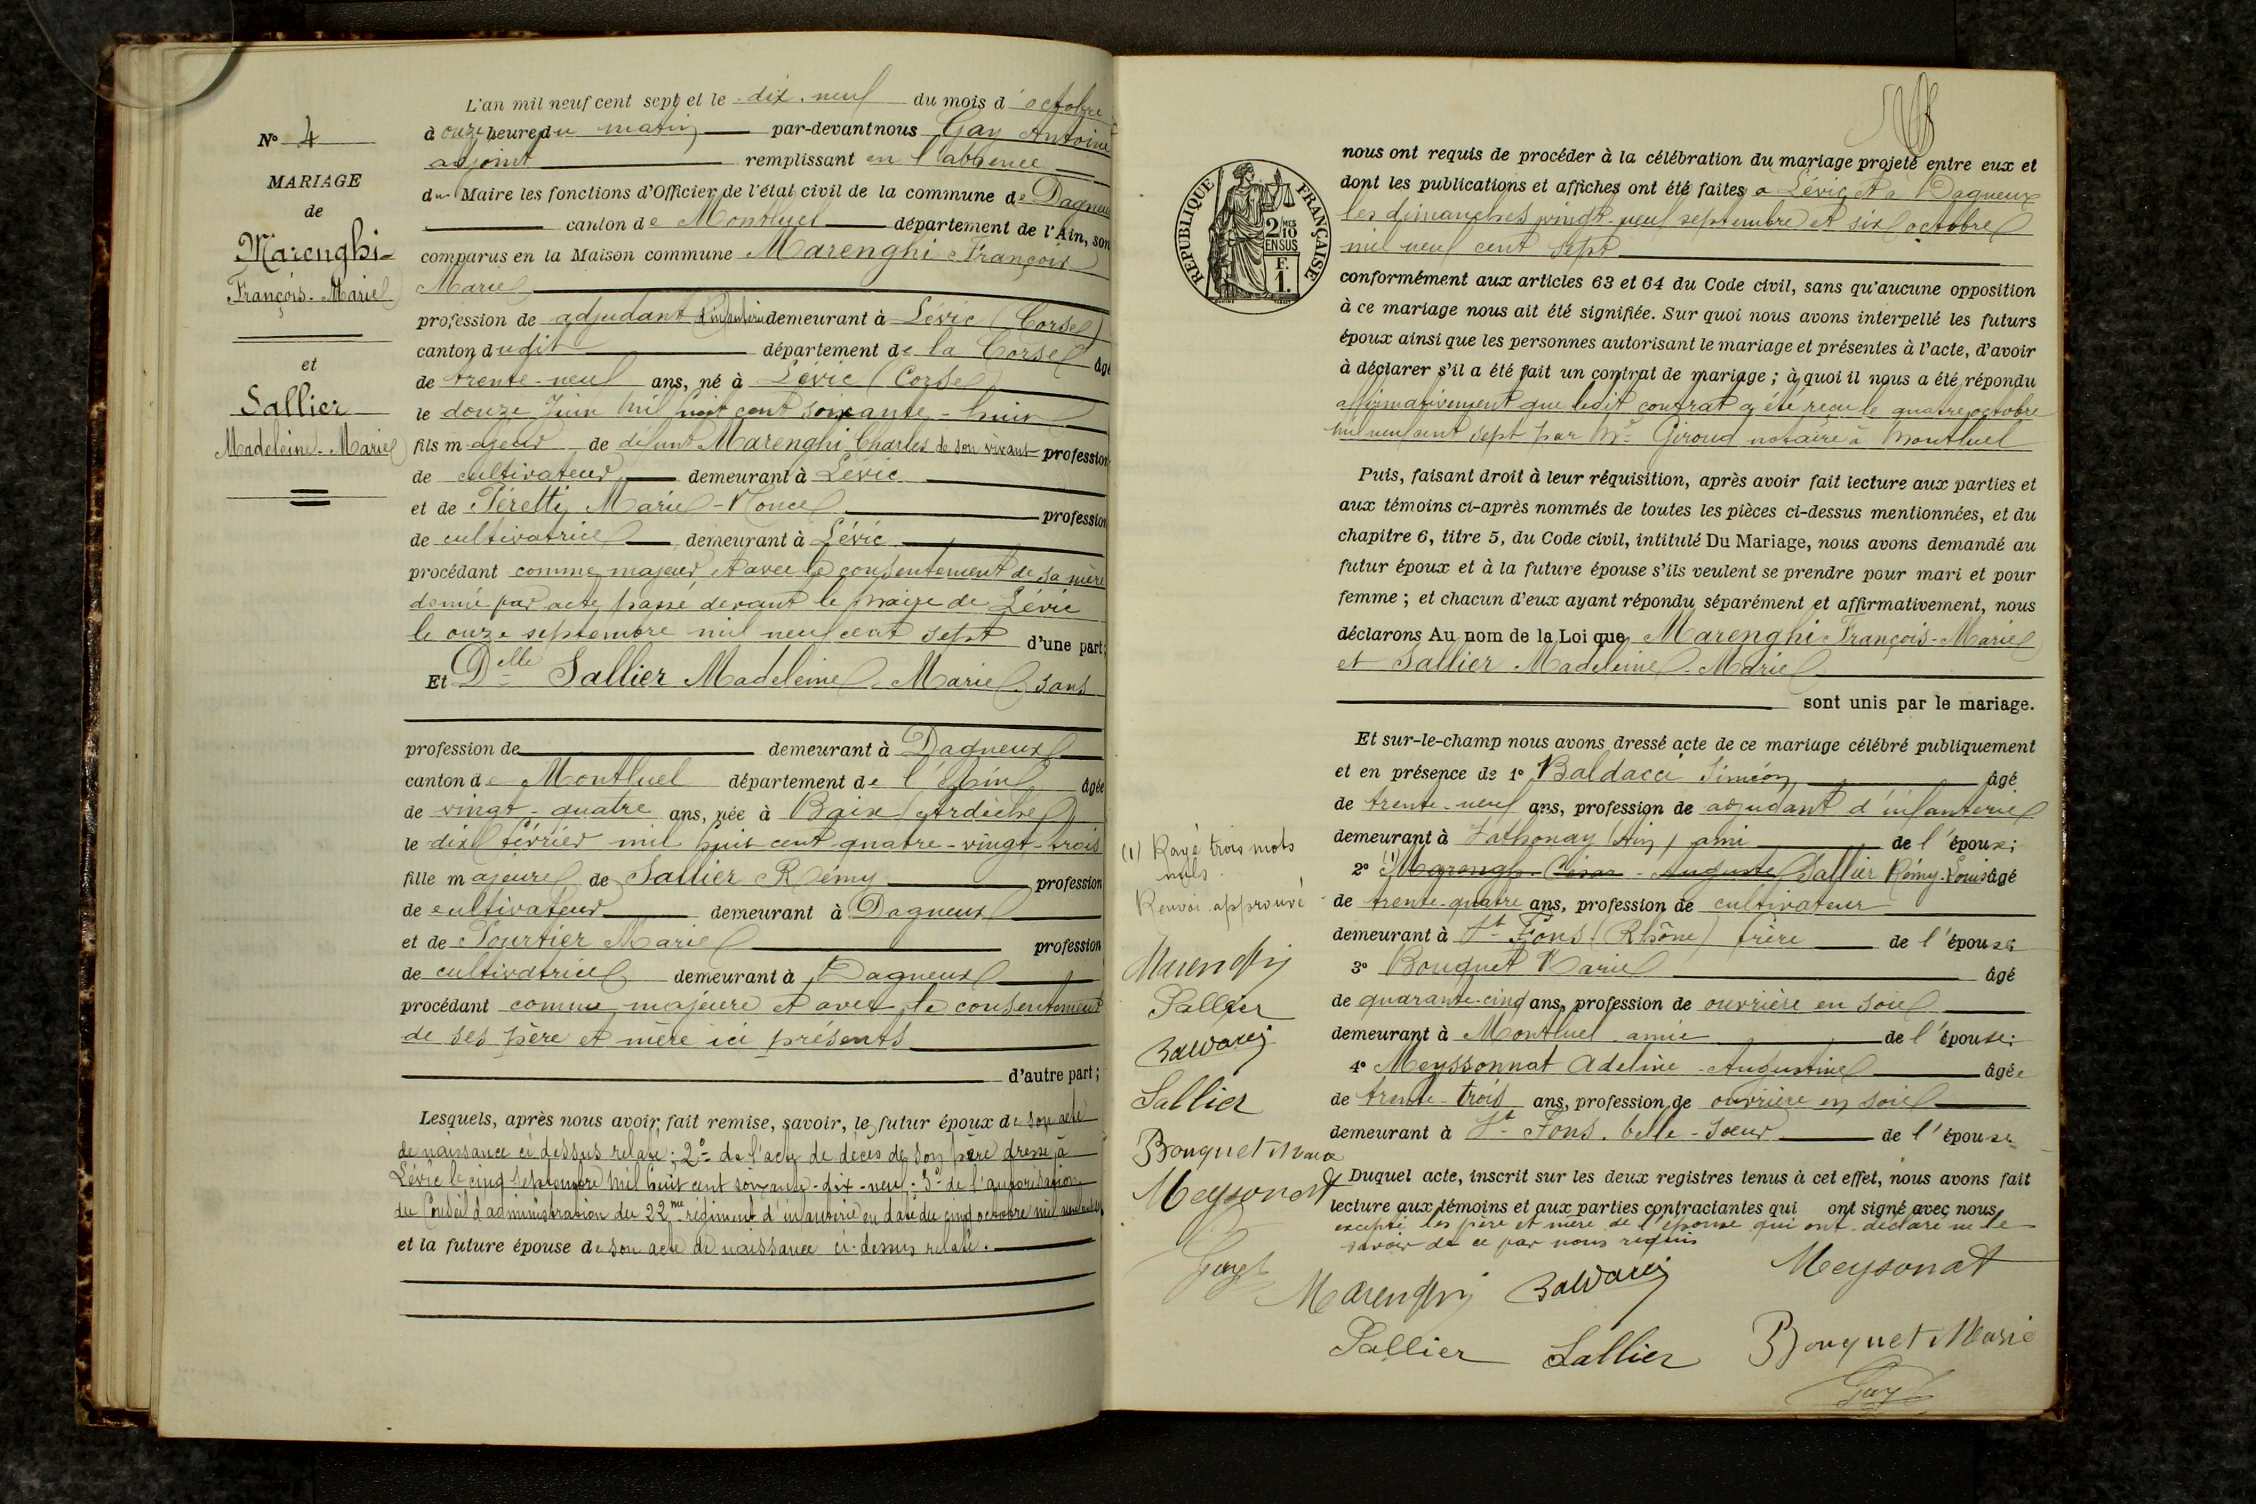 N° 4
MARIAGE
de
Marenghi
François-Marie
et
Sallier
Madeleine-Marie
L'an mil neuf cent sept et le dix-neuf du mois d'octobre
à onze heures du matin par-devant nous Gay Antoine
adjoint remplissant en l'absence
du Maire les fonctions d'Officier de l'état civil de la commune de Dagneux
canton de Montluel département de l'Ain, sont
comparus en la Maison commune Marenghi François
Marie
profession de adjudant d'infanterie demeurant à Lévie (Corse)
canton dudit département de la Corse âgé
de trente-neuf ans, né à Lévie (Corse)
le douze Juin mil huit cent soixante-huit
fils majeur de défunt Marenghi Charles de son vivant profession
de cultivateur demeurant à Lévie
et de Péretti Marie-Nonce profession
de cultivatrice demeurant à Lévie
procédant comme majeur et avec le consentement de sa mère
donné par acte passé devant le maire de Lévie
le onze septembre mil neuf cent sept d'une part;
Et Delle Sallier Madeleine-Marie, sans
profession de demeurant à Dagneux
canton de Montluel département de l'Ain âgée
de vingt-quatre ans, née à Baix (Ardèche)
le dix février mil huit cent quatre-vingt-trois
fille majeure de Sallier Rémy profession
de cultivateur demeurant à Dagneux
et de Tourtier Marie profession
de cultivatrice demeurant à Dagneux
procédant comme majeure et avec le consentement
de ses père et mère ici présents
d'autre part;
Lesquels, après nous avoir fait remise, savoir, le futur époux de son acte
de naissance ci dessus relaté; 2° de l'acte de décès de son père dressé à
Lévie le cinq septembre mil huit cent soixante-dix-neuf; 3° de l'autorisation
du Conseil d'administration du 22me régiment d'infanterie en date du cinq octobre mil neuf cent sept
et la future épouse de son acte de naissance ci-dessus relaté.
RÉPUBLIQUE FRANÇAISE
2 MES 10 EN SUS
F. 1.
nous ont requis de procéder à la célébration du mariage projeté entre eux et
dont les publications et affiches ont été faites à Lévie et à Dagneux
les dimanches vingt-neuf septembre et six octobre
mil neuf cent sept
conformément aux articles 63 et 64 du Code civil, sans qu'aucune opposition
à ce mariage nous ait été signifiée. Sur quoi nous avons interpellé les futurs
époux ainsi que les personnes autorisant le mariage et présentes à l'acte, d'avoir
à déclarer s'il a été fait un contrat de mariage; à quoi il nous a été répondu
affirmativement que ledit contrat a été reçu le quatre octobre
mil neuf cent sept par Me Giroud notaire à Montluel
Puis, faisant droit à leur réquisition, après avoir fait lecture aux parties et
aux témoins ci-après nommés de toutes les pièces ci-dessus mentionnées, et du
chapitre 6, titre 5, du Code civil, intitulé Du Mariage, nous avons demandé au
futur époux et à la future épouse s'ils veulent se prendre pour mari et pour
femme; et chacun d'eux ayant répondu séparément et affirmativement, nous
déclarons Au nom de la Loi que Marenghi François-Marie
et Sallier Madeleine-Marie
sont unis par le mariage.
Et sur-le-champ nous avons dressé acte de ce mariage célébré publiquement
et en présence de 1° Baldacci Siméon âgé
de trente-neuf ans, profession de adjudant d'infanterie
demeurant à Sathonay (Ain) ami de l'époux;
2° (1) Marenghi César-Auguste Sallier Rémy-Louis âgé
de trente-quatre ans, profession de cultivateur
demeurant à St-Fons (Rhône) frère de l'épouse
3° Bouquet Marie âgé
de quarante-cinq ans, profession de ouvrière en soie
demeurant à Montluel amie de l'épouse;
4° Meyssonnat Adeline-Augustine âgée
de trente-trois ans, profession de ouvrière en soie
demeurant à St-Fons, belle-soeur de l'épouse
Duquel acte, inscrit sur les deux registres tenus à cet effet, nous avons fait
lecture aux témoins et aux parties contractantes qui ont signé avec nous
excepté les père et mère de l'épouse qui ont déclaré ne le
savoir de ce par nous requis
(1) Rayé trois mots
nuls.
Renvoi approuvé
Marenghi
Sallier
Baldacci
Sallier
Bouquet Marie
Meysonat
Gay
Marenghi Baldacci Meysonat
Sallier Sallier Bouquet Marie
Gay